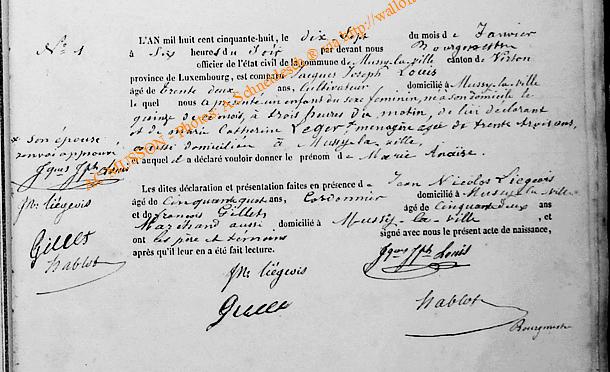 N° 1
L'AN mil huit cent cinquante-huit, le dix Sept du mois de Janvier
à Six heures du Soir par devant nous Bourgmestre
officier de l'état civil de la commune de Mussy-la-ville canton de Virton
province de Luxembourg, est comparu Jacques Joseph Louis
âgé de trente deux ans, Cultivateur domicilié à Mussy-la-ville
le quel nous a présenté un enfant du sexe féminin, né à son domicile le
quinze de ce mois, à trois heures du matin, de lui déclarant
et de Marie Catherine Leger * ménagère agée de trente trois ans,
aussi domiciliée à Mussy-la-ville
et auquel il a déclaré vouloir donner le prénom de Marie Anaïse.
* son épouse
renvoi approuvé
Jques Jph Louis
JN. Liégeois
Gillet
Hablot
Les dites déclaration et présentation faites en présence de Jean Nicolas Liégeois
âgé de Cinquante ans, Cordonnier domicilié à Mussy-la-ville
et de françois Gillet âgé de Cinquante deux ans
Marchand aussi domicilié à Mussy-la-ville, et
ont les père et témoins signé avec nous le présent acte de naissance,
après qu'il leur en a été fait lecture.
JN. Liégeois
Jques Jph Louis
Gillet
Hablot
Bourgmestre
AC MUSSON - Photos A. Schneider